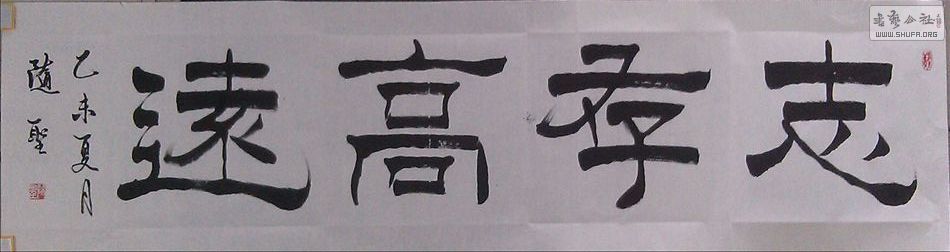 志存高遠
乙未夏月
隨聖
書藝公社
WWW.SHUFA.ORG